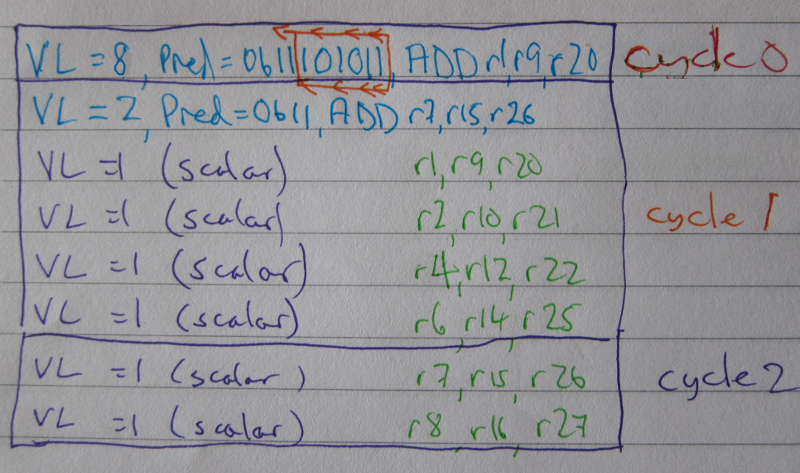 VL = 8, Pred = 0b11101011, ADD r1, r9, r20 cycle 0
VL = 2, Pred = 0b11, ADD r7, r15, r26
VL = 1 (scalar) r1, r9, r20
VL = 1 (scalar) r2, r10, r21 cycle 1
VL = 1 (scalar) r4, r12, r22
VL = 1 (scalar) r6, r14, r25
VL = 1 (scalar) r7, r15, r26 cycle 2
VL = 1 (scalar) r8 r16, r27